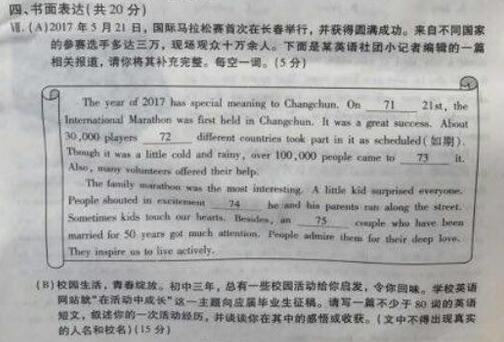 四、书面表达(共 20 分)
Ⅶ. (A)2017 年 5 月 21 日，国际马拉松赛首次在长春举行，并获得圆满成功。来自不同国家
的参赛选手多达三万，现场观众十万余人。下面是某英语社团小记者编辑的一篇
相关报道，请你将其补充完整。每空一词。(5 分)
The year of 2017 has special meaning to Changchun. On 71 21st, the
International Marathon was first held in Changchun. It was a great success. About
30,000 players 72 different countries took part in it as scheduled (如期).
Though it was a little cold and rainy, over 100,000 people came to 73 it.
Also, many volunteers offered their help.
The family marathon was the most interesting. A little kid surprised everyone.
People shouted in excitement 74 he and his parents ran along the street.
Sometimes kids touch our hearts. Besides, an 75 couple who have been
married for 50 years got much attention. People admire them for their deep love.
They inspire us to live actively.
(B)校园生活，青春绽放。初中三年，总有一些校园活动给你启发，令你回味。学校英语
网站就“在活动中成长”这一主题向应届毕业生征稿。请写一篇不少于 80 词的英语
短文，叙述你的一次活动经历，并谈谈你在其中的感悟或收获。(文中不得出现真实
的人名和校名)(15 分)